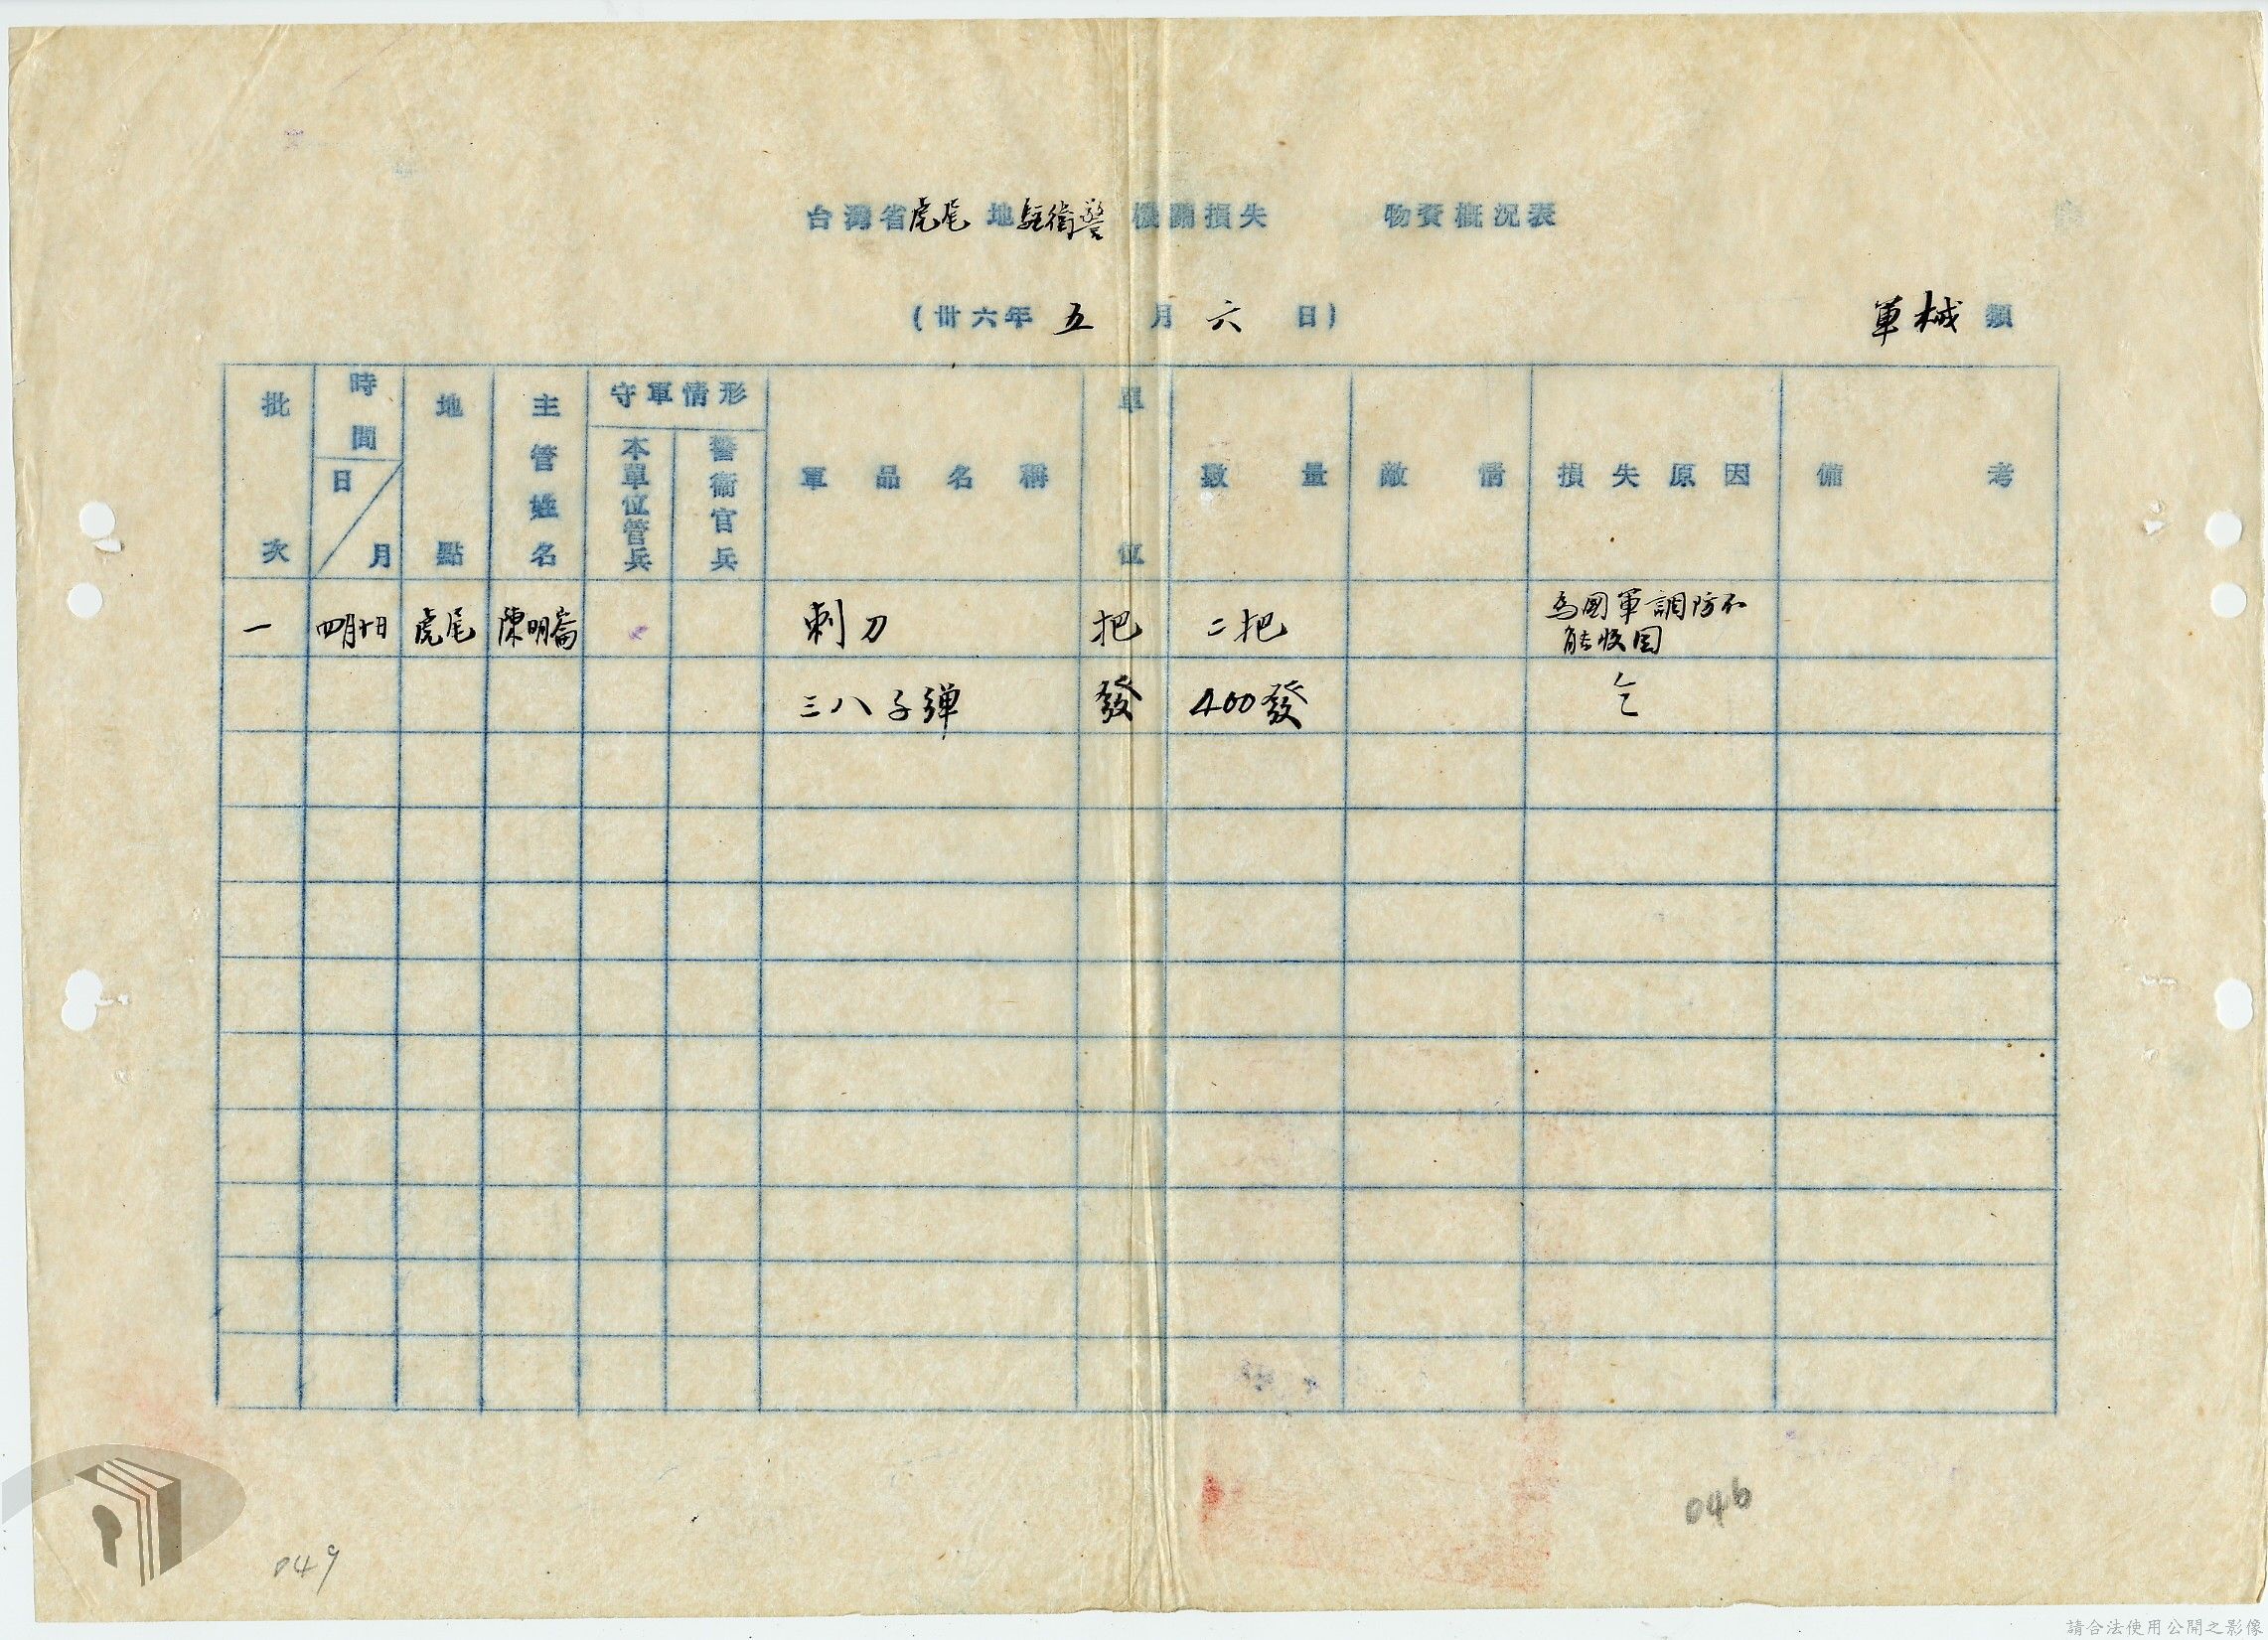 台灣省虎尾地駐衛警機關損失 物資概況表
(卅六年五月六日)
軍械類
批次 時間 日/月 地點 主管姓名 守軍情形 本單位管兵 警衛官兵 軍品名稱 單位 數量 敵情 損失原因 備考
一 四月十日 虎尾 陳明 刺刀 把 二把 為國軍調防不
能收回
三八子彈 發 400發 仝
049
046
請合法使用公開之影像